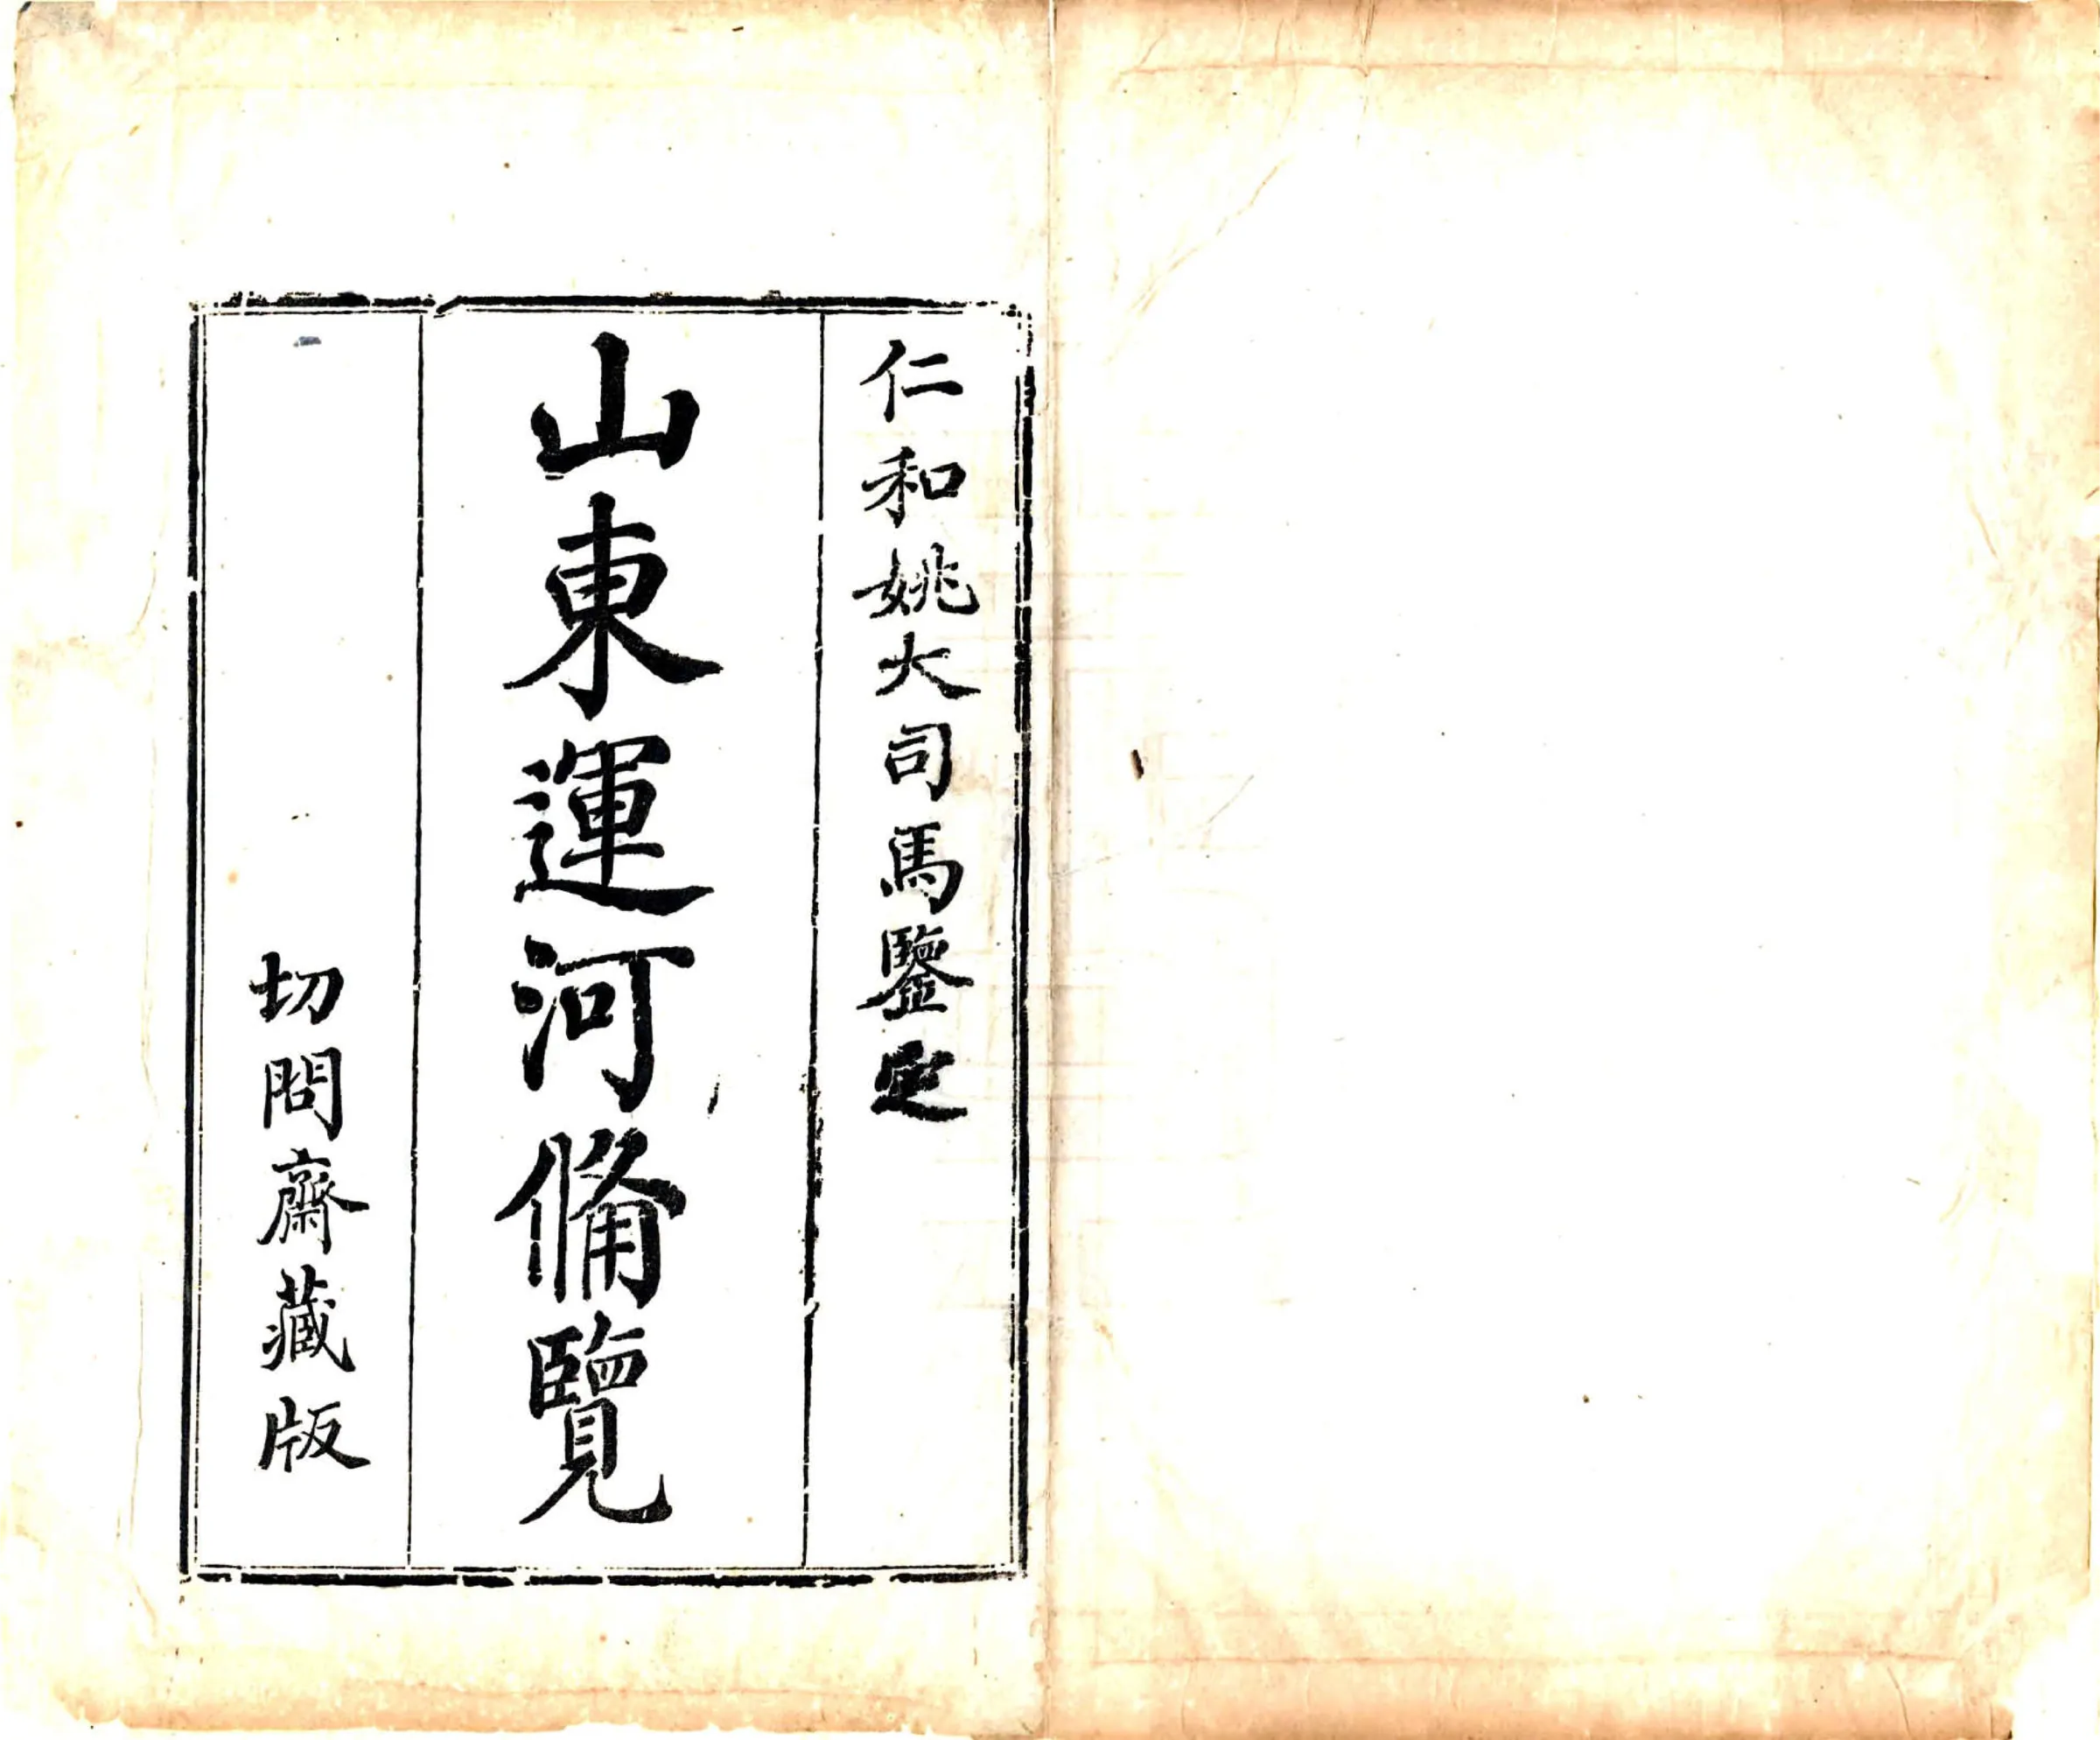 仁和姚大司馬鑒定
山東運河備覽
切問齋藏版